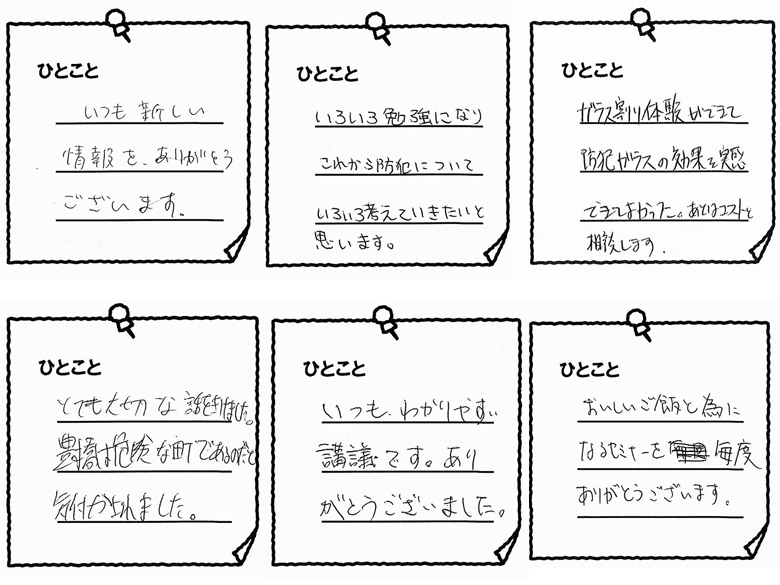 ひとこと
いつも新しい
情報を、ありがとう
ございます。
ひとこと
いろいろ勉強になり
これから防犯について
いろいろ考えていきたいと
思います。
ひとこと
ガラス割り体験ができて
防犯ガラスの効果を実感
できてよかった。あとはコストと
相談します.
ひとこと
とても大切な話を
豊橋は危険な町であるのだと
気付かされました。
ひとこと
いつも、わかりやすい
講議です。あり
がとうございました。
ひとこと
おいしいご飯と為に
なるセミナーを 毎度
ありがとうございます。